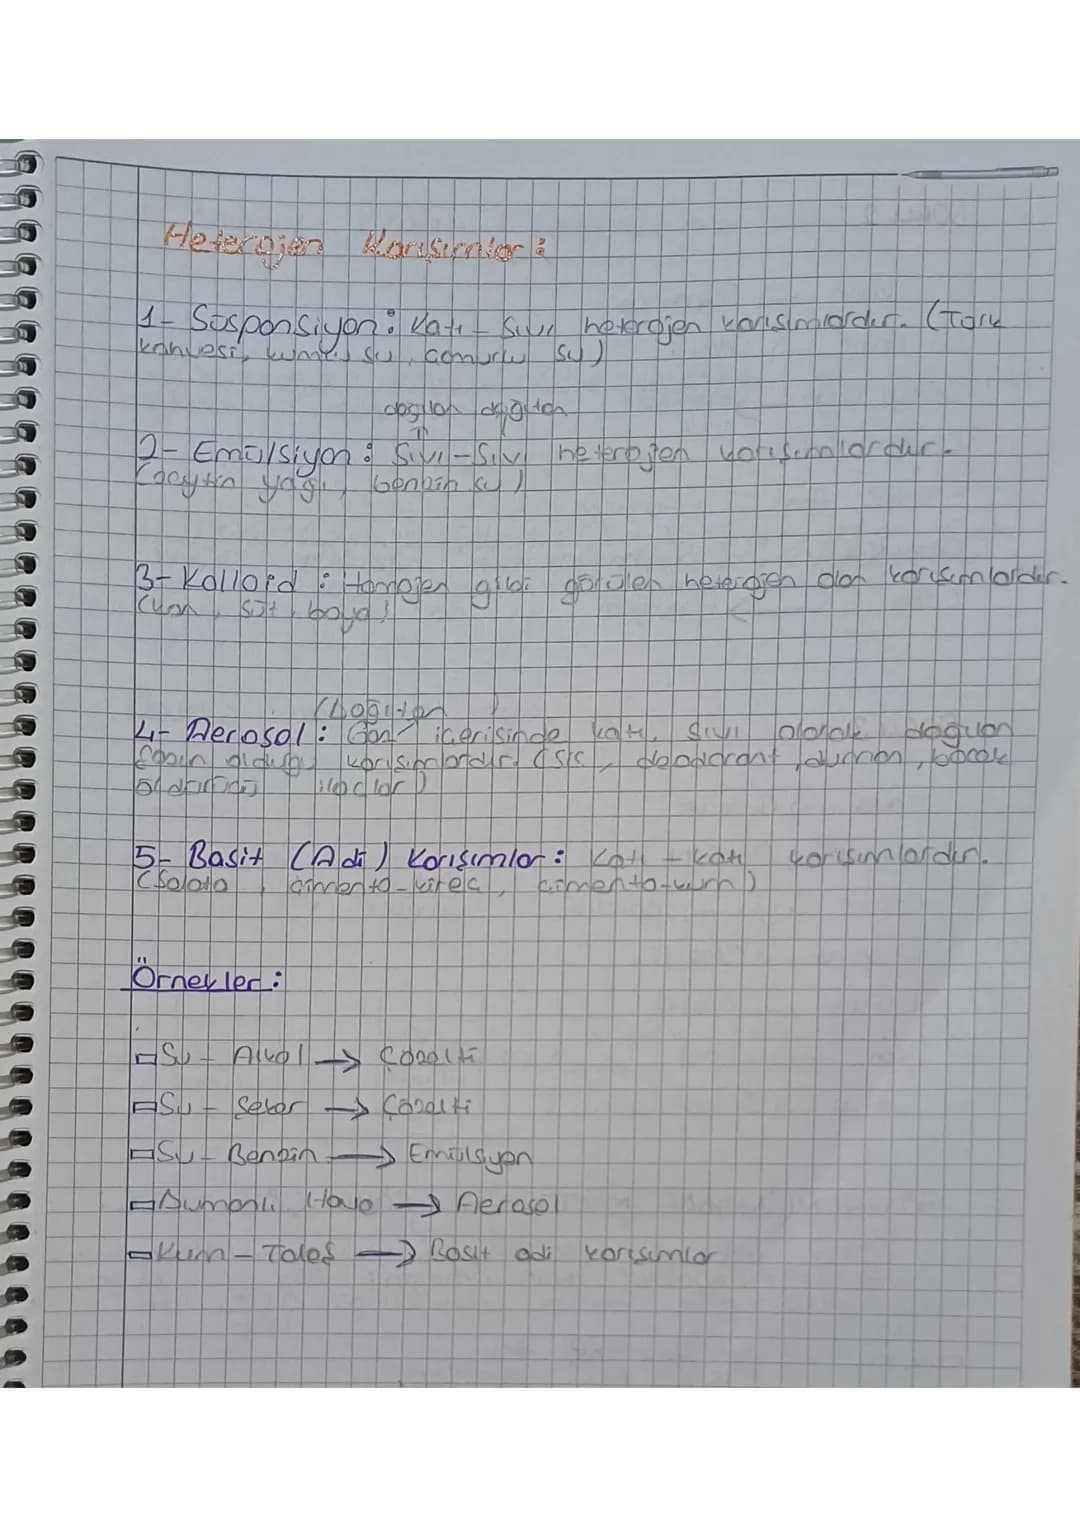 Heterojen Karışımlar:
1- Süspansiyon: Katı - Sıvı heterojen karışımlardır. (Türk
kahvesi, kumlu su, çamurlu su)
dağılan dağıtan
2- Emülsiyon: Sıvı-Sıvı heterojen karışımlardır.
(zeytin yağı, benzin su)
3- Kolloid: Homojen gibi görülen heterojen olan karışımlardır.
(kan, süt, boya)
(Dağıtan
4- Aerosol: Gaz içerisinde katı, sıvı olarak dağılan
olduğu karışımlardır. (sis, deodorant, duman, böcek
öldürücü ilaçlar)
5- Basit (Adi) Karışımlar: Katı - katı karışımlardır.
(Salata, çimento-kireç, çimento-kum)
Örnekler:
Su - Alkol → Çözelti
Su - Şeker → Çözelti
Su - Benzin → Emülsiyon
Dumanlı Hava → Aerosol
Kum - Talaş → Basit adi karışımlar